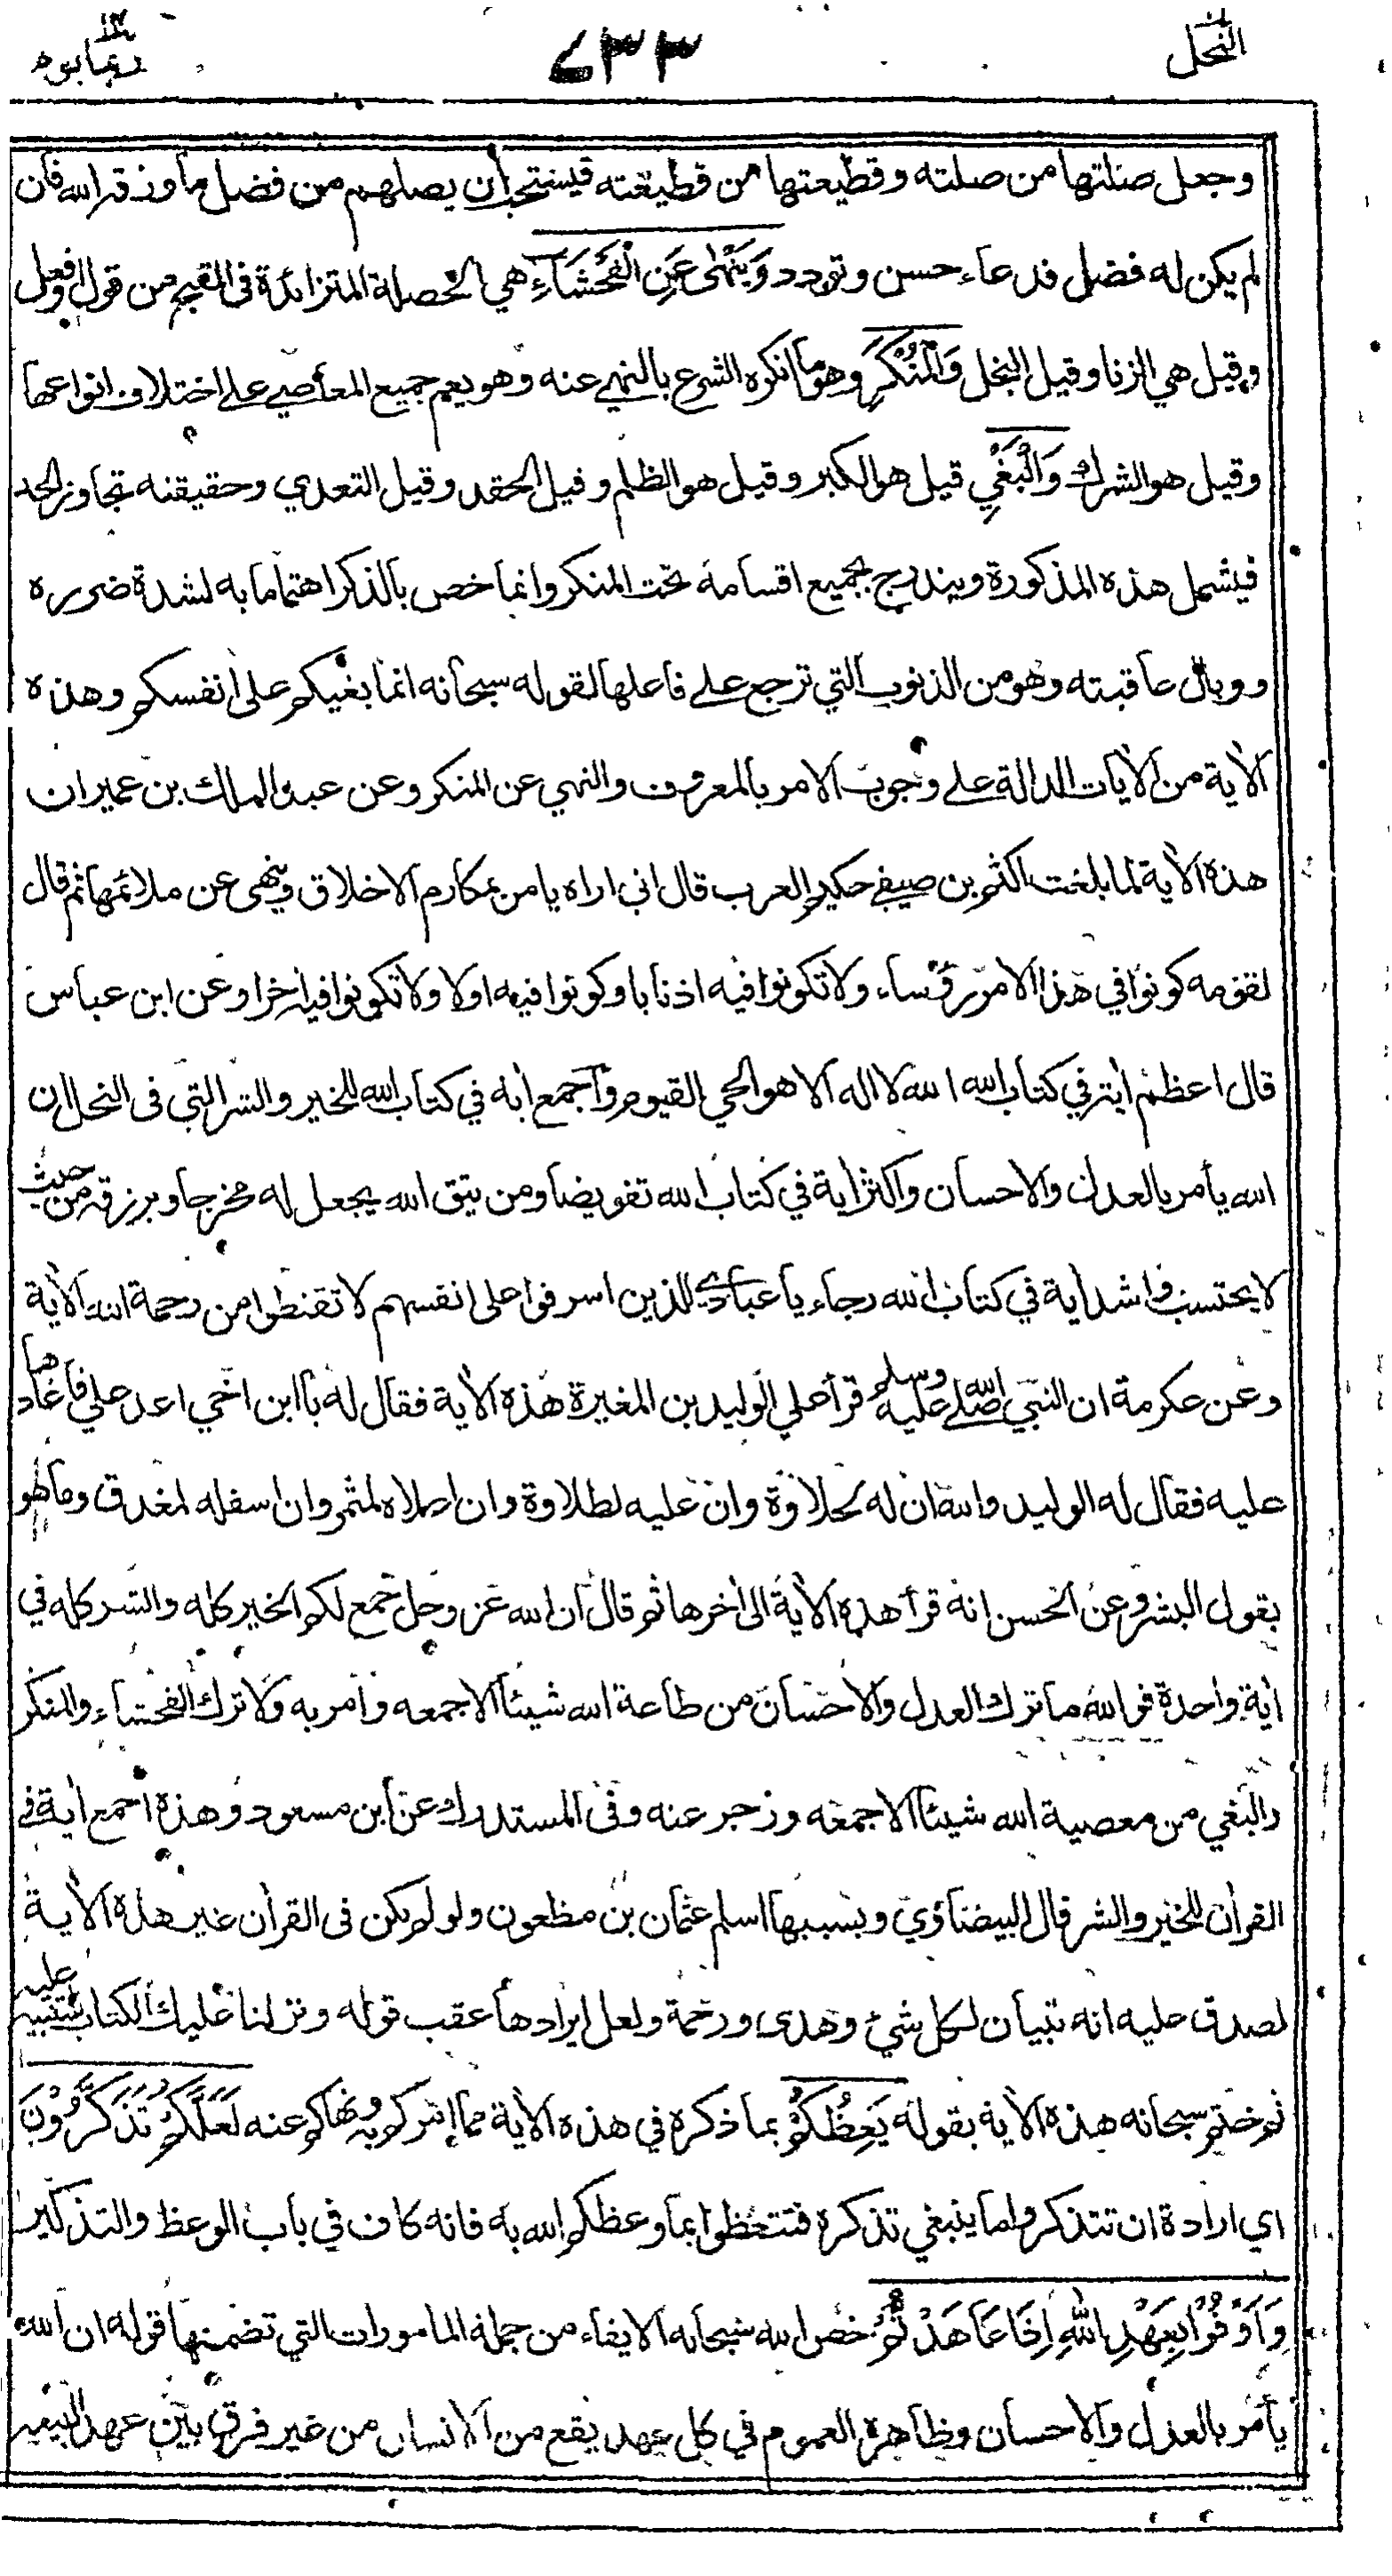 النحل ٧٣٣ ربما
وجعل صلتها من صلته وقطيعتها من قطيعته فيستحب أن يصلهم من فضل ما رزقه الله فان
لم يكن له فضل فدعاء حسن وتودد وَيَنْهٰى عَنِ الْفَحْشَاءِ هي الخصلة المتزائدة في القبح من قول او فعل
وقيل هي الزنا وقيل البخل وَالْمُنْكَرِ وهو ما انكره الشرع بالنهي عنه وهو يعم جميع المعاصي على اختلاف انواعها
وقيل هو الشرك وَالْبَغْيِ قيل هو الكبر وقيل هو الظلم وقيل الحقد وقيل التعدي وحقيقته تجاوز الحد
فيشمل هذه المذكورة ويندرج بجميع اقسامه تحت المنكر وانما خص بالذكر اهتماما به لشدة ضرره
ووبال عاقبته وهو من الذنوب التي ترجع على فاعلها لقوله سبحانه انما بغيكم على انفسكم وهذه
الأية من الأيات الدالة على وجوب الامر بالمعروف والنهي عن المنكر وعن عبد الملك بن عمير ان
هذه الأية لما بلغت اكثم بن صيفي حكيم العرب قال اني اراه يامر بمكارم الاخلاق وينهى عن ملائمها ثم قال
لقومه كونوا في هذا الامر رؤساء ولا تكونوا فيه اذنابا وكونوا فيه اولا ولا تكونوا فيه اخرا وعن ابن عباس
قال اعظم أية في كتاب الله الله لا اله الا هو الحي القيوم وأجمع أية في كتاب الله للخير والشر التي في النحل ان
الله يأمر بالعدل والاحسان واكثر أية في كتاب الله تفويضا ومن يتق الله يجعل له مخرجا ويرزقه من حيث
لا يحتسب واشد أية في كتاب الله رجاء يا عبادي الذين اسرفوا على انفسهم لا تقنطوا من رحمة الله الأية
وعن عكرمة ان النبي صلى الله عليه وسلم قرأ على الوليد بن المغيرة هذه الأية فقال له يا ابن اخي اعد علي فأعادها
عليه فقال له الوليد والله ان له لحلاوة وان عليه لطلاوة وان اعلاه لمثمر وان اسفله لمغدق وما هو
بقول البشر وعن الحسن انه قرأ هذه الأية الى أخرها ثم قال ان الله عز وجل جمع لكم الخير كله والشر كله في
أية واحدة فوالله ما ترك العدل والاحسان من طاعة الله شيئا الا جمعه وأمر به ولا ترك الفحشاء والمنكر
والبغي من معصية الله شيئا الا جمعه وزجر عنه وفي المستدرك عن ابن مسعود وهذه اجمع أية في
القرأن للخير والشر قال البيضاوي وبسببها اسلم عثمان بن مظعون ولو لم يكن في القرأن غير هذه الأية
لصدق عليه انه تبيان لكل شيء وهدى ورحمة ولعل ايرادها عقب قوله ونزلنا عليك الكتاب للتنبيه عليه
ثم ختم سبحانه هذه الأية بقوله يَعِظُكُمْ بما ذكره في هذه الأية مما امركم به ونهاكم عنه لَعَلَّكُمْ تَذَكَّرُوْنَ
اي ارادة ان تتذكروا ما ينبغي تذكره فتتعظوا بما وعظكم الله به فانه كاف في باب الوعظ والتذكير
وَأَوْفُوْا بِعَهْدِ اللّٰهِ إِذَا عَاهَدْتُمْ خص الله سبحانه الايفاء من جملة المامورات التي تضمنها قوله ان الله
يأمر بالعدل والاحسان وظاهره العموم في كل عهد يقع من الانسان من غير فرق بين عهد البيعة